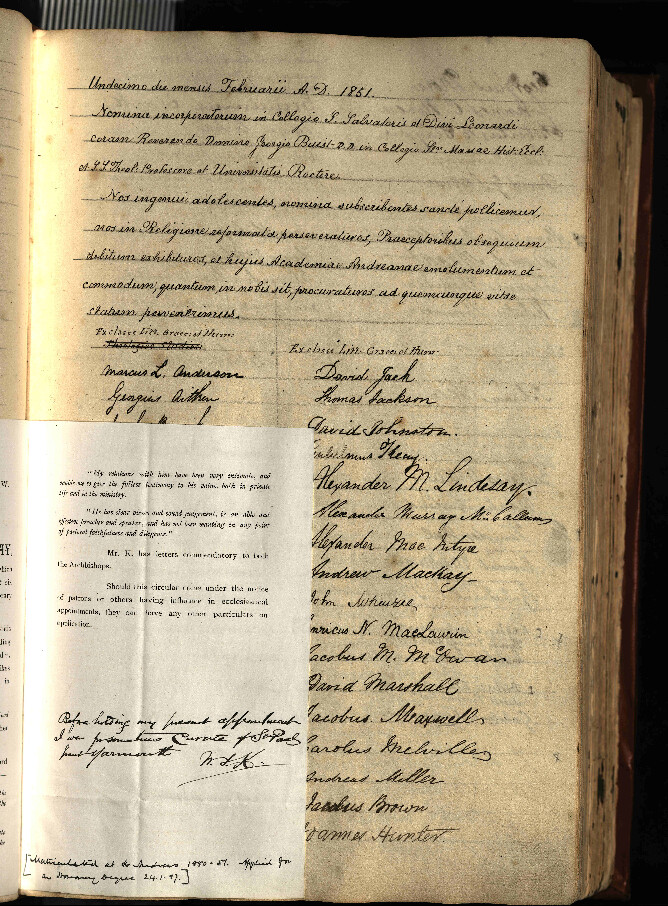 Undecimo die mensis Februarii A. D. 1851.
Nomina incorporatorum in Collegio S. Salvatoris et Divi Leonardi
coram Reverendo Domino Georgio Buist D.D. in Collegio Stae Mariae Hist. Eccl.
et S.S. Theol. Professore et Universitatis Rectore.
Nos ingenui adolescentes, nomina subscribentes sancte pollicemur,
nos in Religione reformata perseveraturos, Praeceptoribus obsequium
debitum exhibituros, et hujus Academiae Andreanae emolumentum et
commodum, quantum in nobis sit, procuraturos ad quemcunque vitae
statum pervenerimus.
Marcus L. Anderson
Georgius Aitken
David Jack
Thomas Jackson
David Johnston.
Alexander M. Lindesay.
Alexander Murray McCallum
Alexander Mac Intyre
Andrew Mackay
John
Henricus N. MacLaurin
Jacobus M. McOwan
David Marshall
Jacobus Maxwell
Carolus Melville
Andreas Miller
Jacobus Brown
Joannes Hunter
"My relations with him have been very intimate, and
enable me to give the fullest testimony to his value, both in private
life and in the ministry.
"He has clear views and sound judgement, is an able and
efficient preacher and speaker, and has not been wanting in any point
of pastoral faithfulness and diligence."
Mr. K. has letters commendatory to both
the Archbishops.
Should this circular come under the notice
of patrons or others having influence in ecclesiastical
appointments, they can have any other particulars on
application.
Before holding my present appointment
I was Curate of St Paul's
Yarmouth W. S. K.
[Matriculated at St Andrews 1850-51. Applied for
an Honorary Degree 24.1.87.]